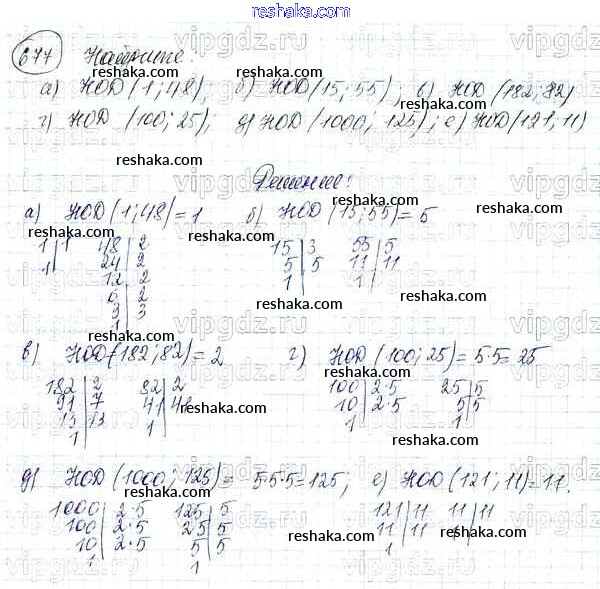 reshaka.com
677 Найдите:
а) НОД (1; 48), б) НОД (15; 55); в) НОД (182; 82)
г) НОД (100; 25); д) НОД (1000; 125); е) НОД (121; 11)
Решение:
а) НОД (1; 48) = 1 б) НОД (15; 55) = 5
1 | 1 48 | 2 15 | 3 55 | 5
1 | 24 | 2 5 | 5 11 | 11
12 | 2 1 | 1 |
6 | 2
3 | 3
1 |
в) НОД (182; 82) = 2 г) НОД (100; 25) = 5·5 = 25
182 | 2 82 | 2 100 | 2·5 25 | 5
91 | 7 41 | 41 10 | 2·5 5 | 5
13 | 13 1 | 1 | 1 |
1 |
д) НОД (1000; 125) = 5·5·5 = 125; е) НОД (121; 11) = 11.
1000 | 2·5 125 | 5 121 | 11 11 | 11
100 | 2·5 25 | 5 11 | 11 1 |
10 | 2·5 5 | 5 1 |
1 | 1 |